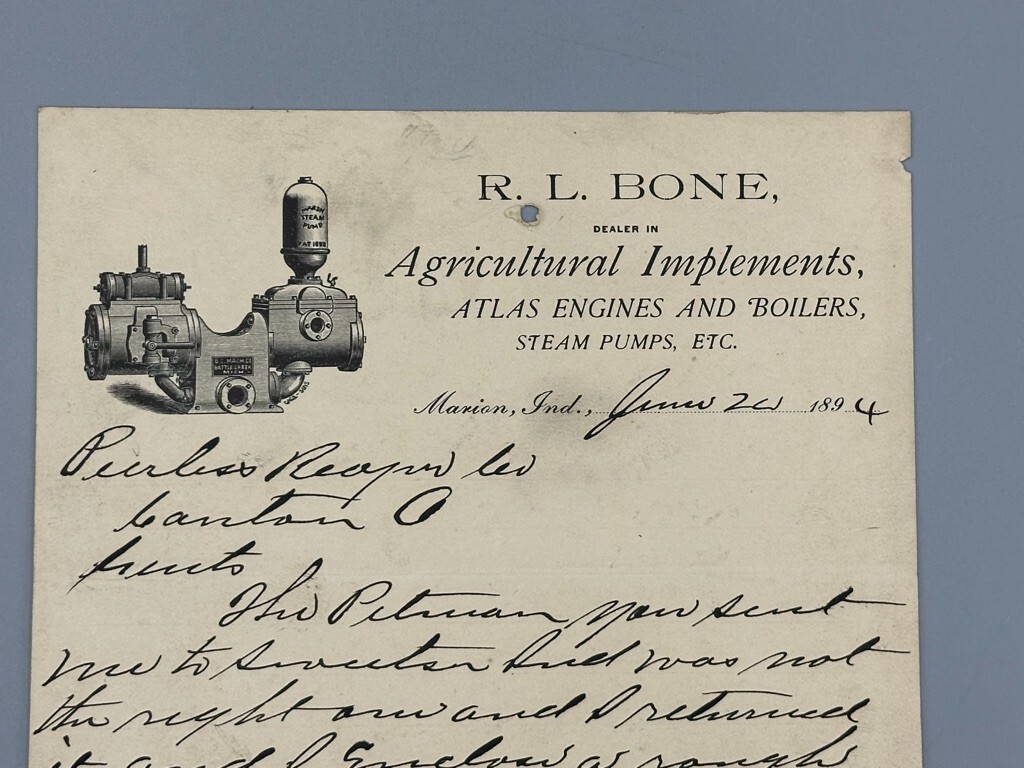 R. L. BONE,
DEALER IN
Agricultural Implements,
ATLAS ENGINES AND BOILERS,
STEAM PUMPS, ETC.
MARSH
STEAM
PUMP
PAT 1888
BATTLE CREEK
MICH
Marion, Ind., June 20 1894
Peerless Reaper Co
Canton O
Gents
The Pitman you sent
me to Sweetser Ind was not
the right one and I returned
it and I Enclose a rough